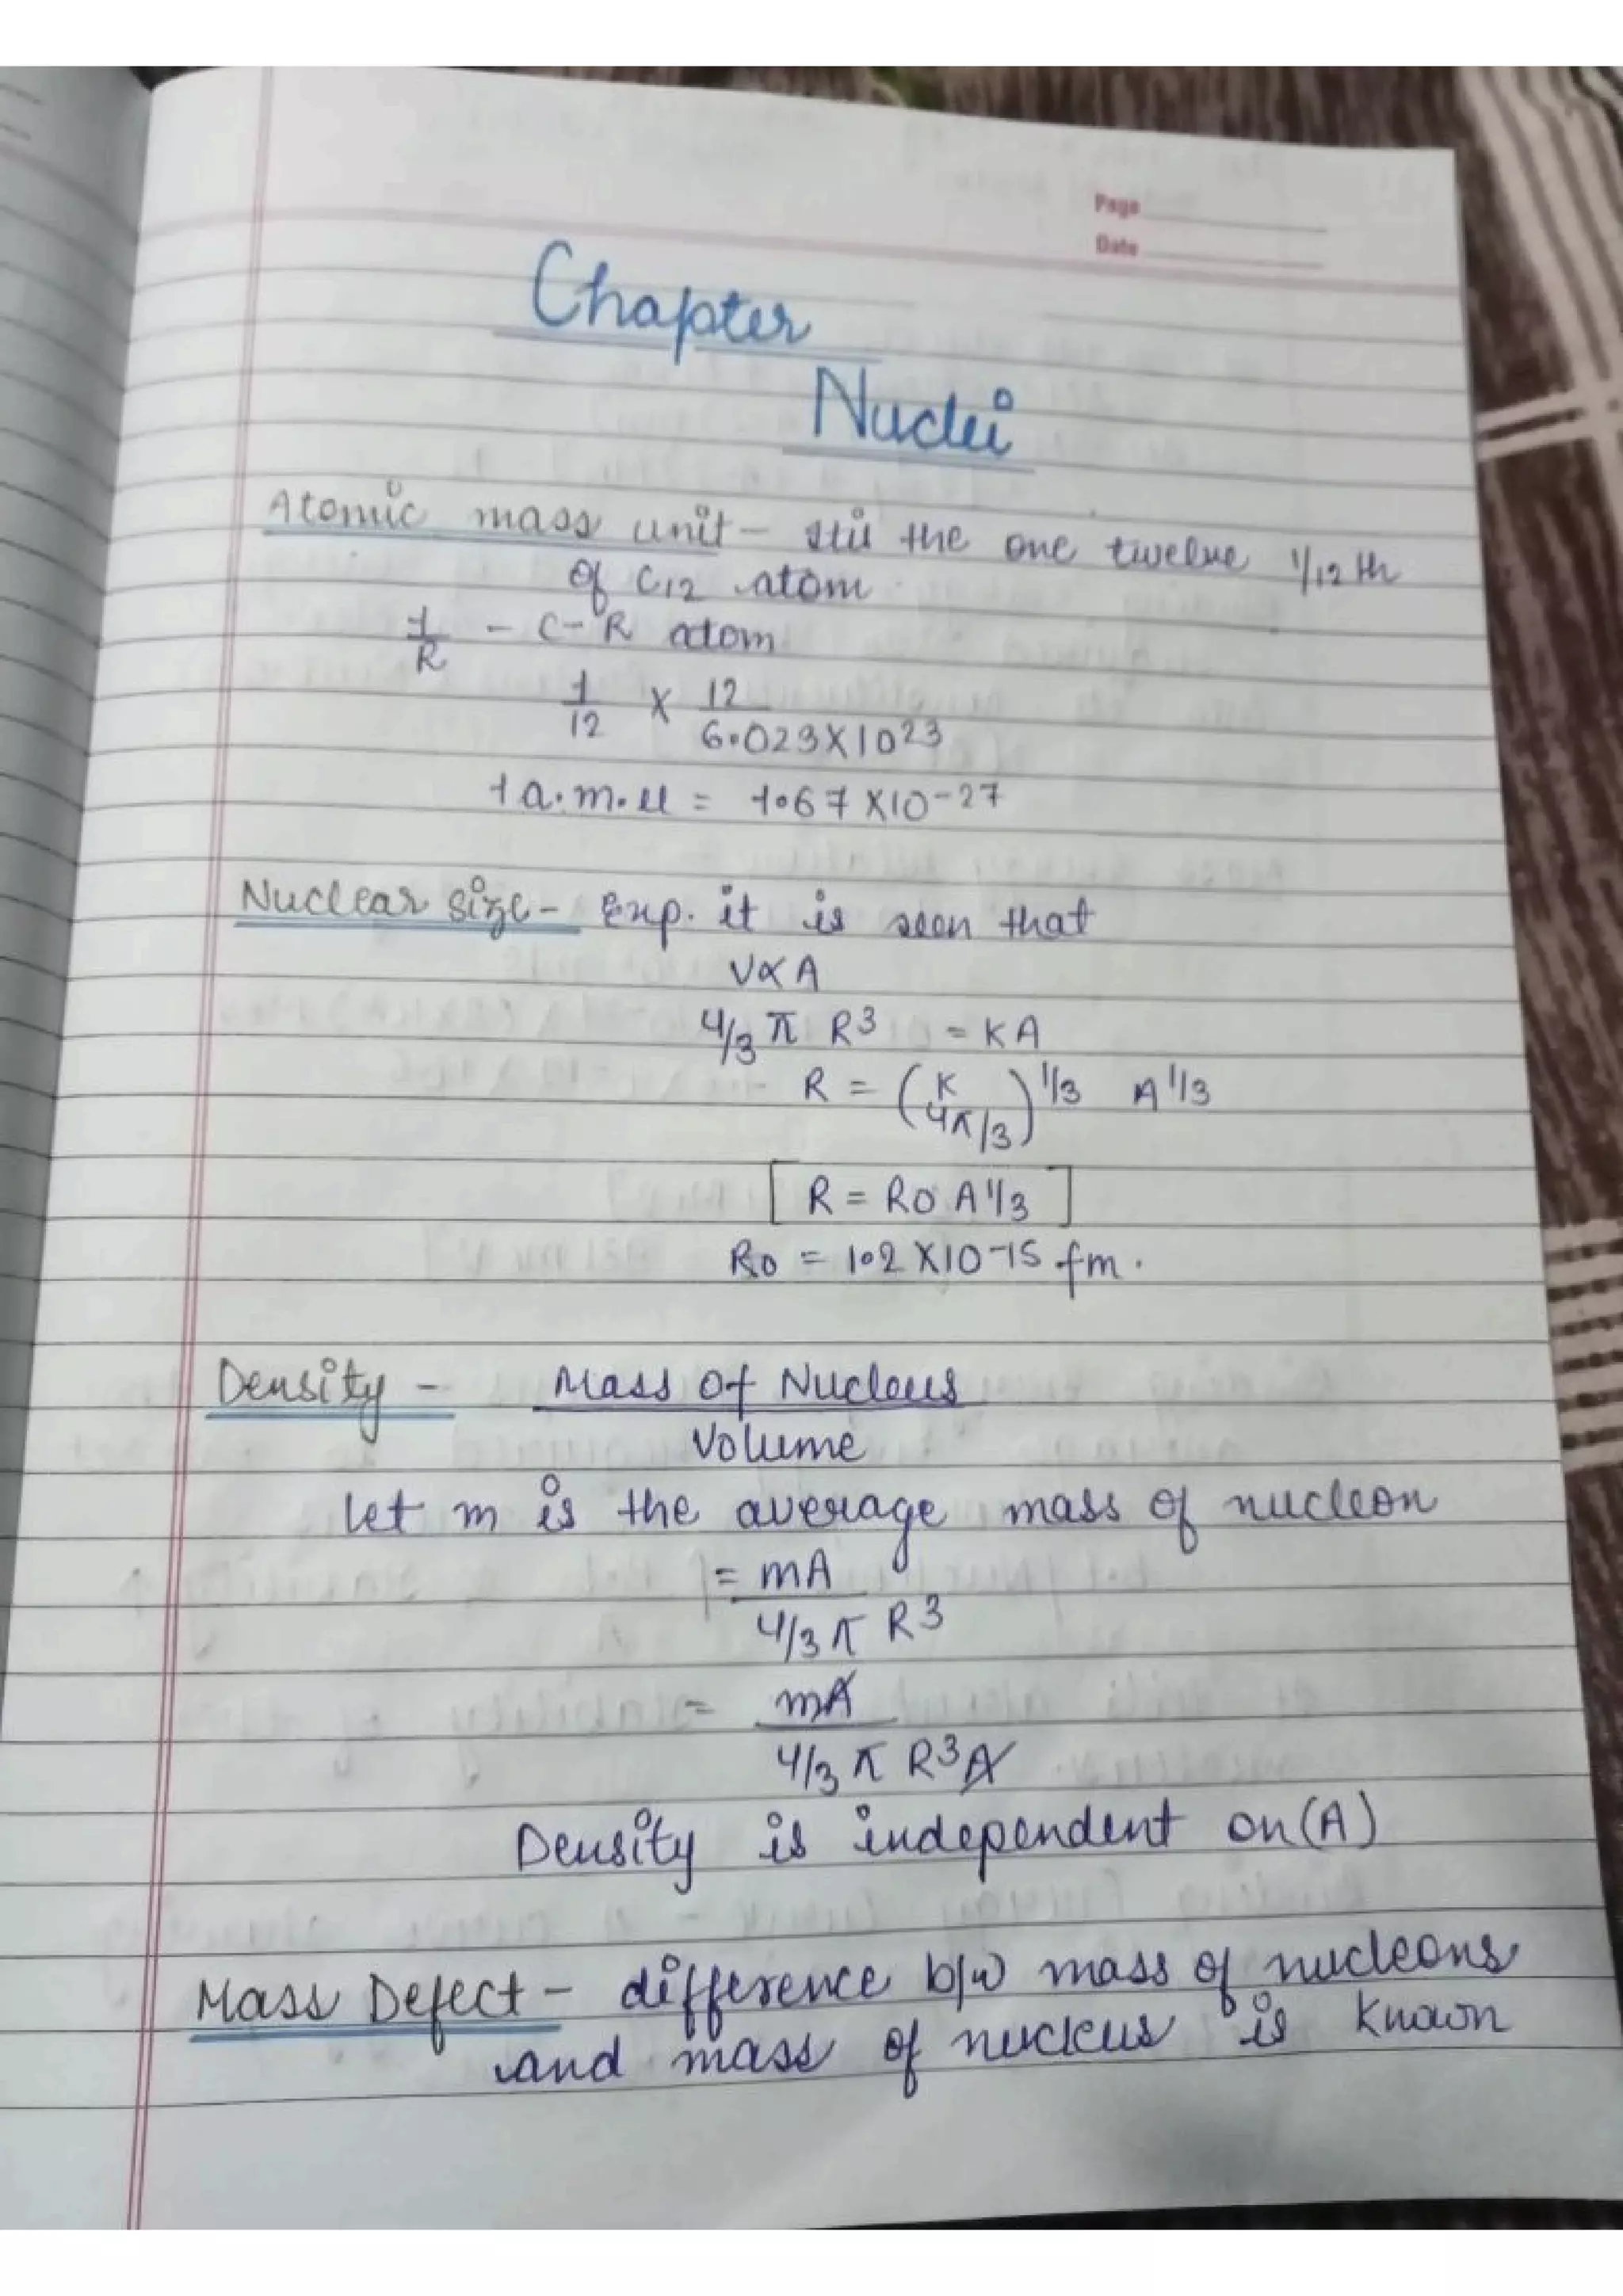 Page
Date
Chapter
Nuclei
Atomic mass unit - the one twelve 1/12 th
of C12 atom
1/R - C-R atom
1/12 X 12/6.023X10²³
1 a.m.u = 1.67 X10-27
Nuclear size - Exp. it is seen that
V∝A
4/3 π R³ = KA
R = (K/4π/3)1/3 A1/3
[R = R0 A1/3]
R0 = 1.2 X10-15 fm.
Density - Mass of Nucleus
Volume
let m is the average mass of nucleon
= mA
4/3 π R³
= mA
4/3 π R³A
Density is independent on (A)
Mass Defect - difference b/w mass of nucleons
and mass of nucleus is known